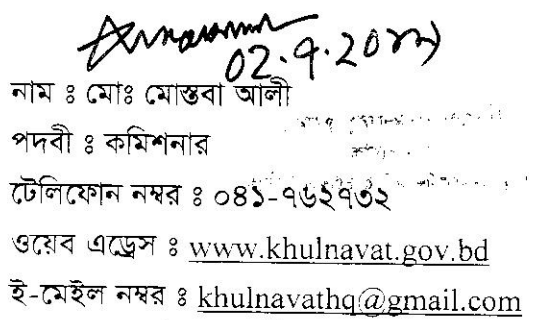 02.9.20
নাম ঃ মোঃ মোস্তবা আলী
পদবী ঃ কমিশনার
টেলিফোন নম্বর ঃ ০৪১-৭৬২৭৩২
ওয়েব এড্রেস ঃ www.khulnavat.gov.bd
ই-মেইল নম্বর ঃ khulnavathq@gmail.com